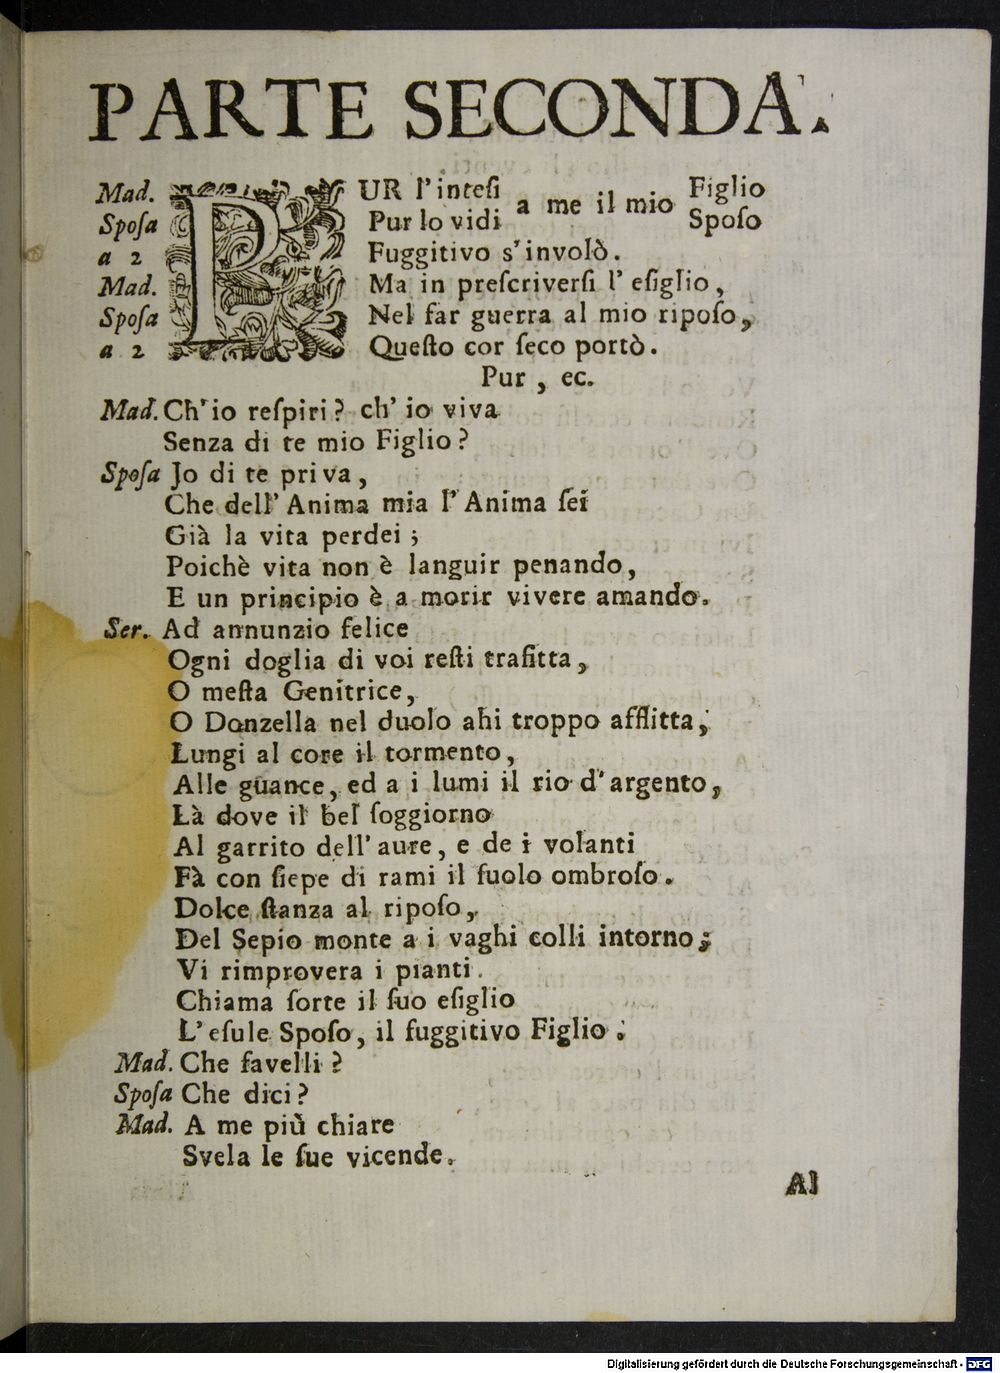 PARTE SECONDA.
Mad. PUR l'intesi a me il mio Figlio
Sposa Pur lo vidi a me il mio Sposo
a 2 Fuggitivo s'involò.
Mad. Ma in prescriversi l'esiglio,
Sposa Nel far guerra al mio riposo,
a 2 Questo cor seco portò.
Pur, ec.
Mad. Ch'io respiri? ch'io viva
Senza di te mio Figlio?
Sposa Jo di te priva,
Che dell'Anima mia l'Anima sei
Già la vita perdei;
Poichè vita non è languir penando,
E un principio è a morir vivere amando.
Ser. Ad annunzio felice
Ogni doglia di voi resti trafitta,
O mesta Genitrice,
O Donzella nel duolo ahi troppo afflitta,
Lungi al core il tormento,
Alle guance, ed a i lumi il rio d'argento,
Là dove il bel soggiorno
Al garrito dell'aure, e de i volanti
Fà con siepe di rami il suolo ombroso.
Dolce stanza al riposo,
Del Sepio monte a i vaghi colli intorno;
Vi rimprovera i pianti.
Chiama sorte il suo esiglio
L'esule Sposo, il fuggitivo Figlio.
Mad. Che favelli?
Sposa Che dici?
Mad. A me più chiare
Svela le sue vicende.
Al
Digitalisierung gefördert durch die Deutsche Forschungsgemeinschaft - DFG